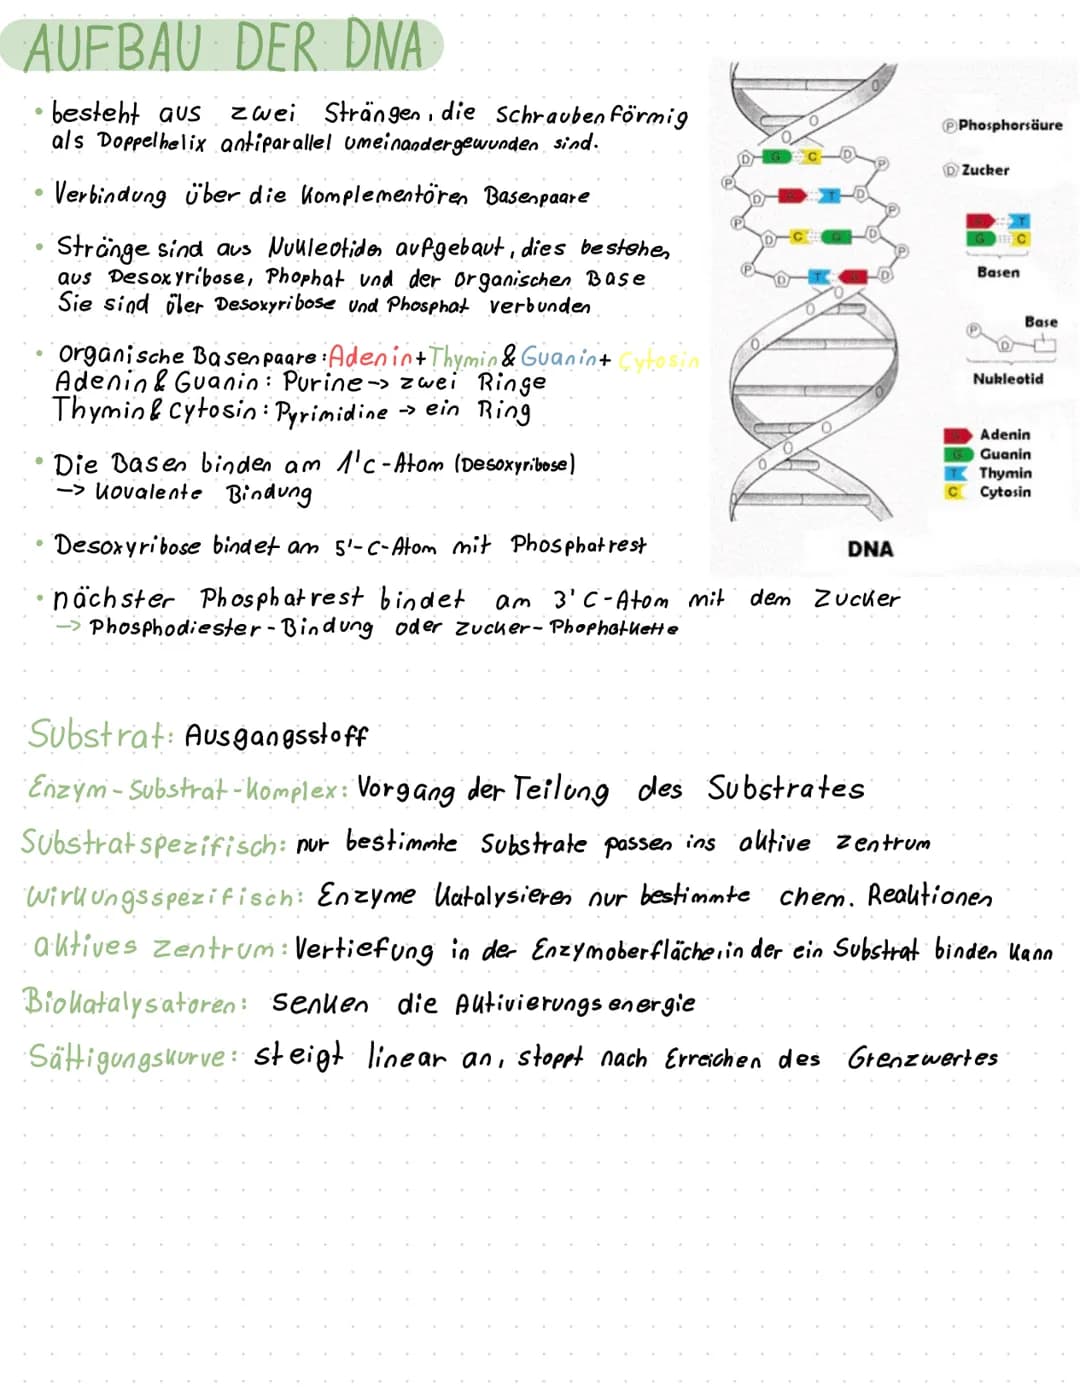 AUFBAU DER DNA
• besteht aus zwei Strängen, die Schraubenförmig
als Doppelhelix antiparallel umeinandergewunden sind.
• Verbindung über die Komplementären Basenpaare
• Stränge sind aus Nukleotiden aufgebaut, dies bestehen
aus Desoxyribose, Phophat und der organischen Base
Sie sind über Desoxyribose und Phosphat verbunden
• organische Basenpaare: Adenin+Thymin & Guanin+ Cytosin
Adenin & Guanin: Purine -> zwei Ringe
Thymin & Cytosin: Pyrimidine -> ein Ring
• Die Basen binden am 1'C-Atom (Desoxyribose)
-> Kovalente Bindung
• Desoxyribose bindet am 5'-C-Atom mit Phosphatrest
• nächster Phosphatrest bindet am 3' C-Atom mit dem Zucker
-> Phosphodiester-Bindung oder Zucker-Phophatkette
P Phosphorsäure
D Zucker
T
G C
Basen
Base
P
D
Nukleotid
Adenin
G Guanin
T Thymin
C Cytosin
D G C D
P P
D T D
P P
D C G D
P P
D T D
DNA
Substrat: Ausgangsstoff
Enzym-Substrat-Komplex: Vorgang der Teilung des Substrates
Substratspezifisch: nur bestimmte Substrate passen ins aktive Zentrum
Wirkungsspezifisch: Enzyme Katalysieren nur bestimmte chem. Reaktionen
aktives Zentrum: Vertiefung in der Enzymoberfläche, in der ein Substrat binden kann
Biokatalysatoren: senken die Aktivierungsenergie
Sättigungskurve: steigt linear an, stoppt nach Erreichen des Grenzwertes